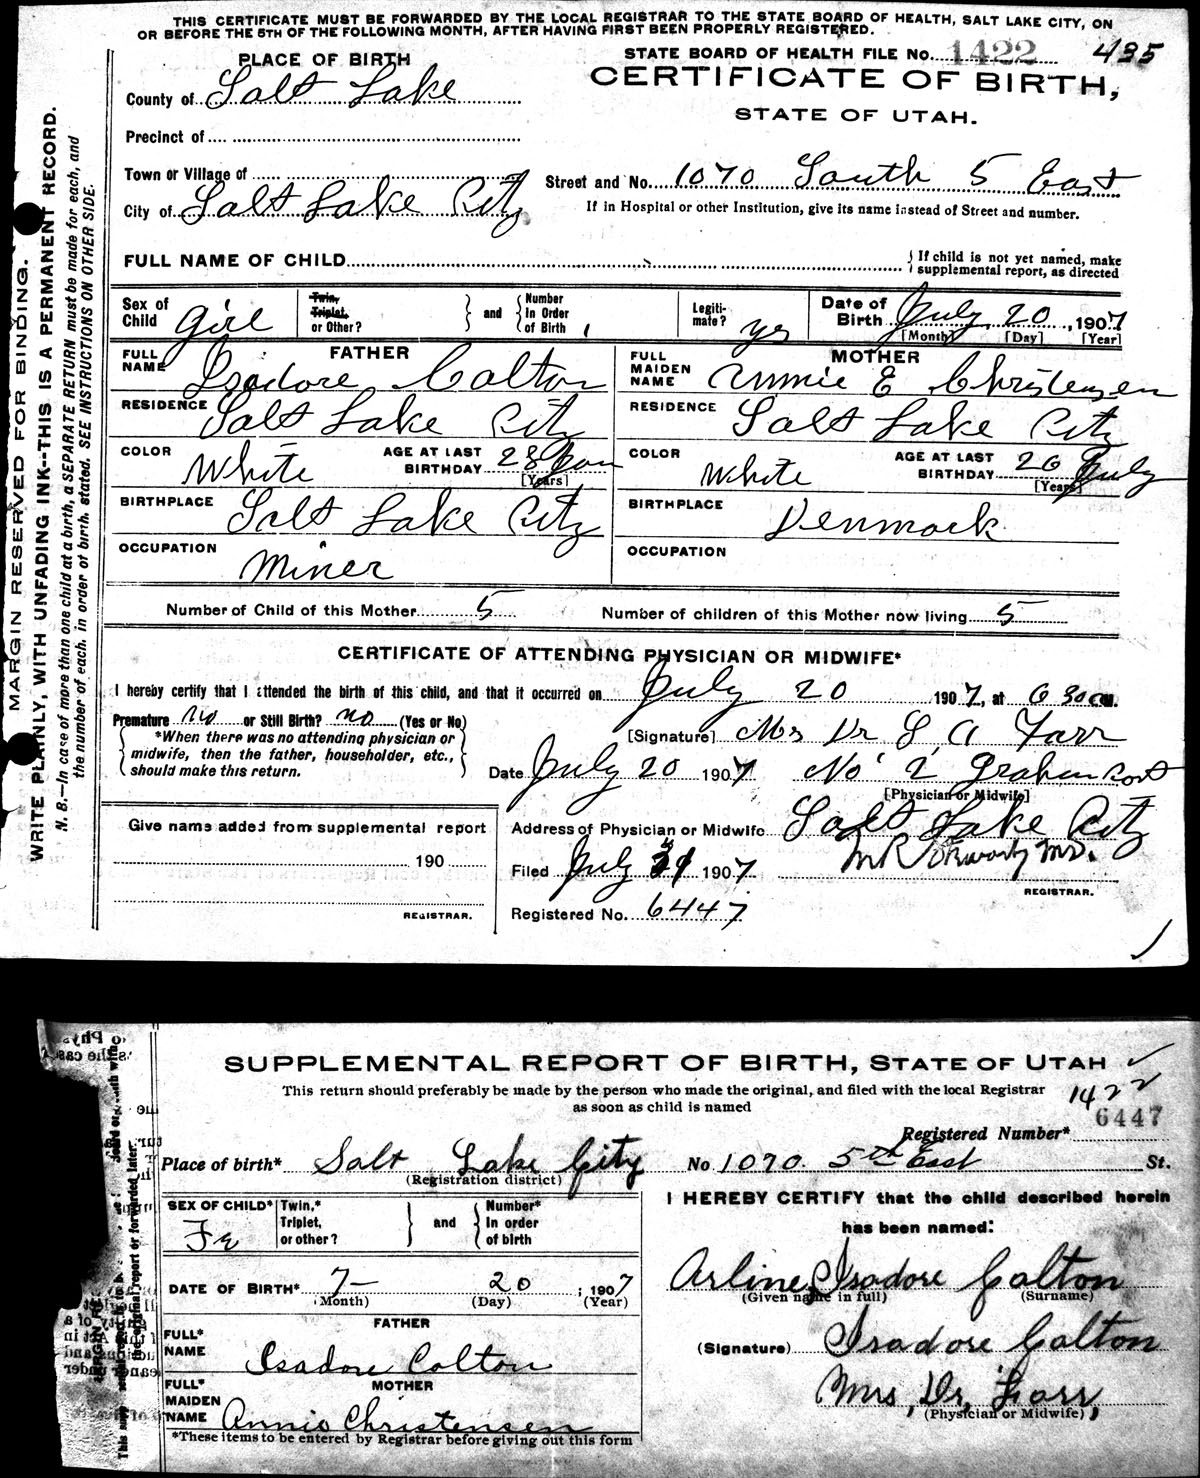 THIS CERTIFICATE MUST BE FORWARDED BY THE LOCAL REGISTRAR TO THE STATE BOARD OF HEALTH, SALT LAKE CITY, ON
OR BEFORE THE 5TH OF THE FOLLOWING MONTH, AFTER HAVING FIRST BEEN PROPERLY REGISTERED.
MARGIN RESERVED FOR BINDING.
WRITE PLAINLY, WITH UNFADING INK--THIS IS A PERMANENT RECORD.
N. B.—In case of more than one child at a birth, a SEPARATE RETURN must be made for each, and
the number of each, in order of birth, stated. SEE INSTRUCTIONS ON OTHER SIDE.
PLACE OF BIRTH
STATE BOARD OF HEALTH FILE No. 1422 435
County of Salt Lake
CERTIFICATE OF BIRTH,
STATE OF UTAH.
Precinct of
Town or Village of
City of Salt Lake City
Street and No. 1070 South 5 East
If in Hospital or other Institution, give its name instead of Street and number.
FULL NAME OF CHILD
If child is not yet named, make
supplemental report, as directed
Sex of Child Girl
Twin, Triplet, or Other?
and
Number In Order of Birth 1
Legiti-mate? yes
Date of Birth July 20, 1907
[Month] [Day] [Year]
FATHER
FULL NAME Isadore Colton
MOTHER
FULL MAIDEN NAME Annie E Christensen
RESIDENCE Salt Lake City
RESIDENCE Salt Lake City
COLOR White
AGE AT LAST BIRTHDAY 28 Jan
[Years]
COLOR White
AGE AT LAST BIRTHDAY 26 July
[Years]
BIRTHPLACE Salt Lake City
BIRTHPLACE Denmark
OCCUPATION Miner
OCCUPATION
Number of Child of this Mother 5
Number of children of this Mother now living 5
CERTIFICATE OF ATTENDING PHYSICIAN OR MIDWIFE*
I hereby certify that I attended the birth of this child, and that it occurred on July 20 1907, at 6 30 a.M.
Premature No or Still Birth? no (Yes or No)
*When there was no attending physician or
midwife, then the father, householder, etc.,
should make this return.
[Signature] Mrs Dr L, A Farr
Date July 20 1907 No 2 Graham Cort
[Physician or Midwife]
Give name added from supplemental report
190
REGISTRAR.
Address of Physician or Midwife Salt Lake City
Filed July 31 1907
REGISTRAR.
Registered No. 6447
SUPPLEMENTAL REPORT OF BIRTH, STATE OF UTAH
This return should preferably be made by the person who made the original, and filed with the local Registrar
as soon as child is named
1422
Registered Number* 6447
Place of birth* Salt Lake City No 1070. 5th East St.
(Registration district)
SEX OF CHILD* Fe
Twin,* Triplet, or other?
and
Number* In order of birth
I HEREBY CERTIFY that the child described herein
has been named:
DATE OF BIRTH* 7— 20, 1907
(Month) (Day) (Year)
Arline, Isadore Colton
(Given name in full) (Surname)
FATHER
FULL* NAME Isadore Colton
(Signature) Isadore Colton
MOTHER
FULL* MAIDEN NAME Annie Christensen
Mrs, Dr, Farr,
(Physician or Midwife)
*These items to be entered by Registrar before giving out this form